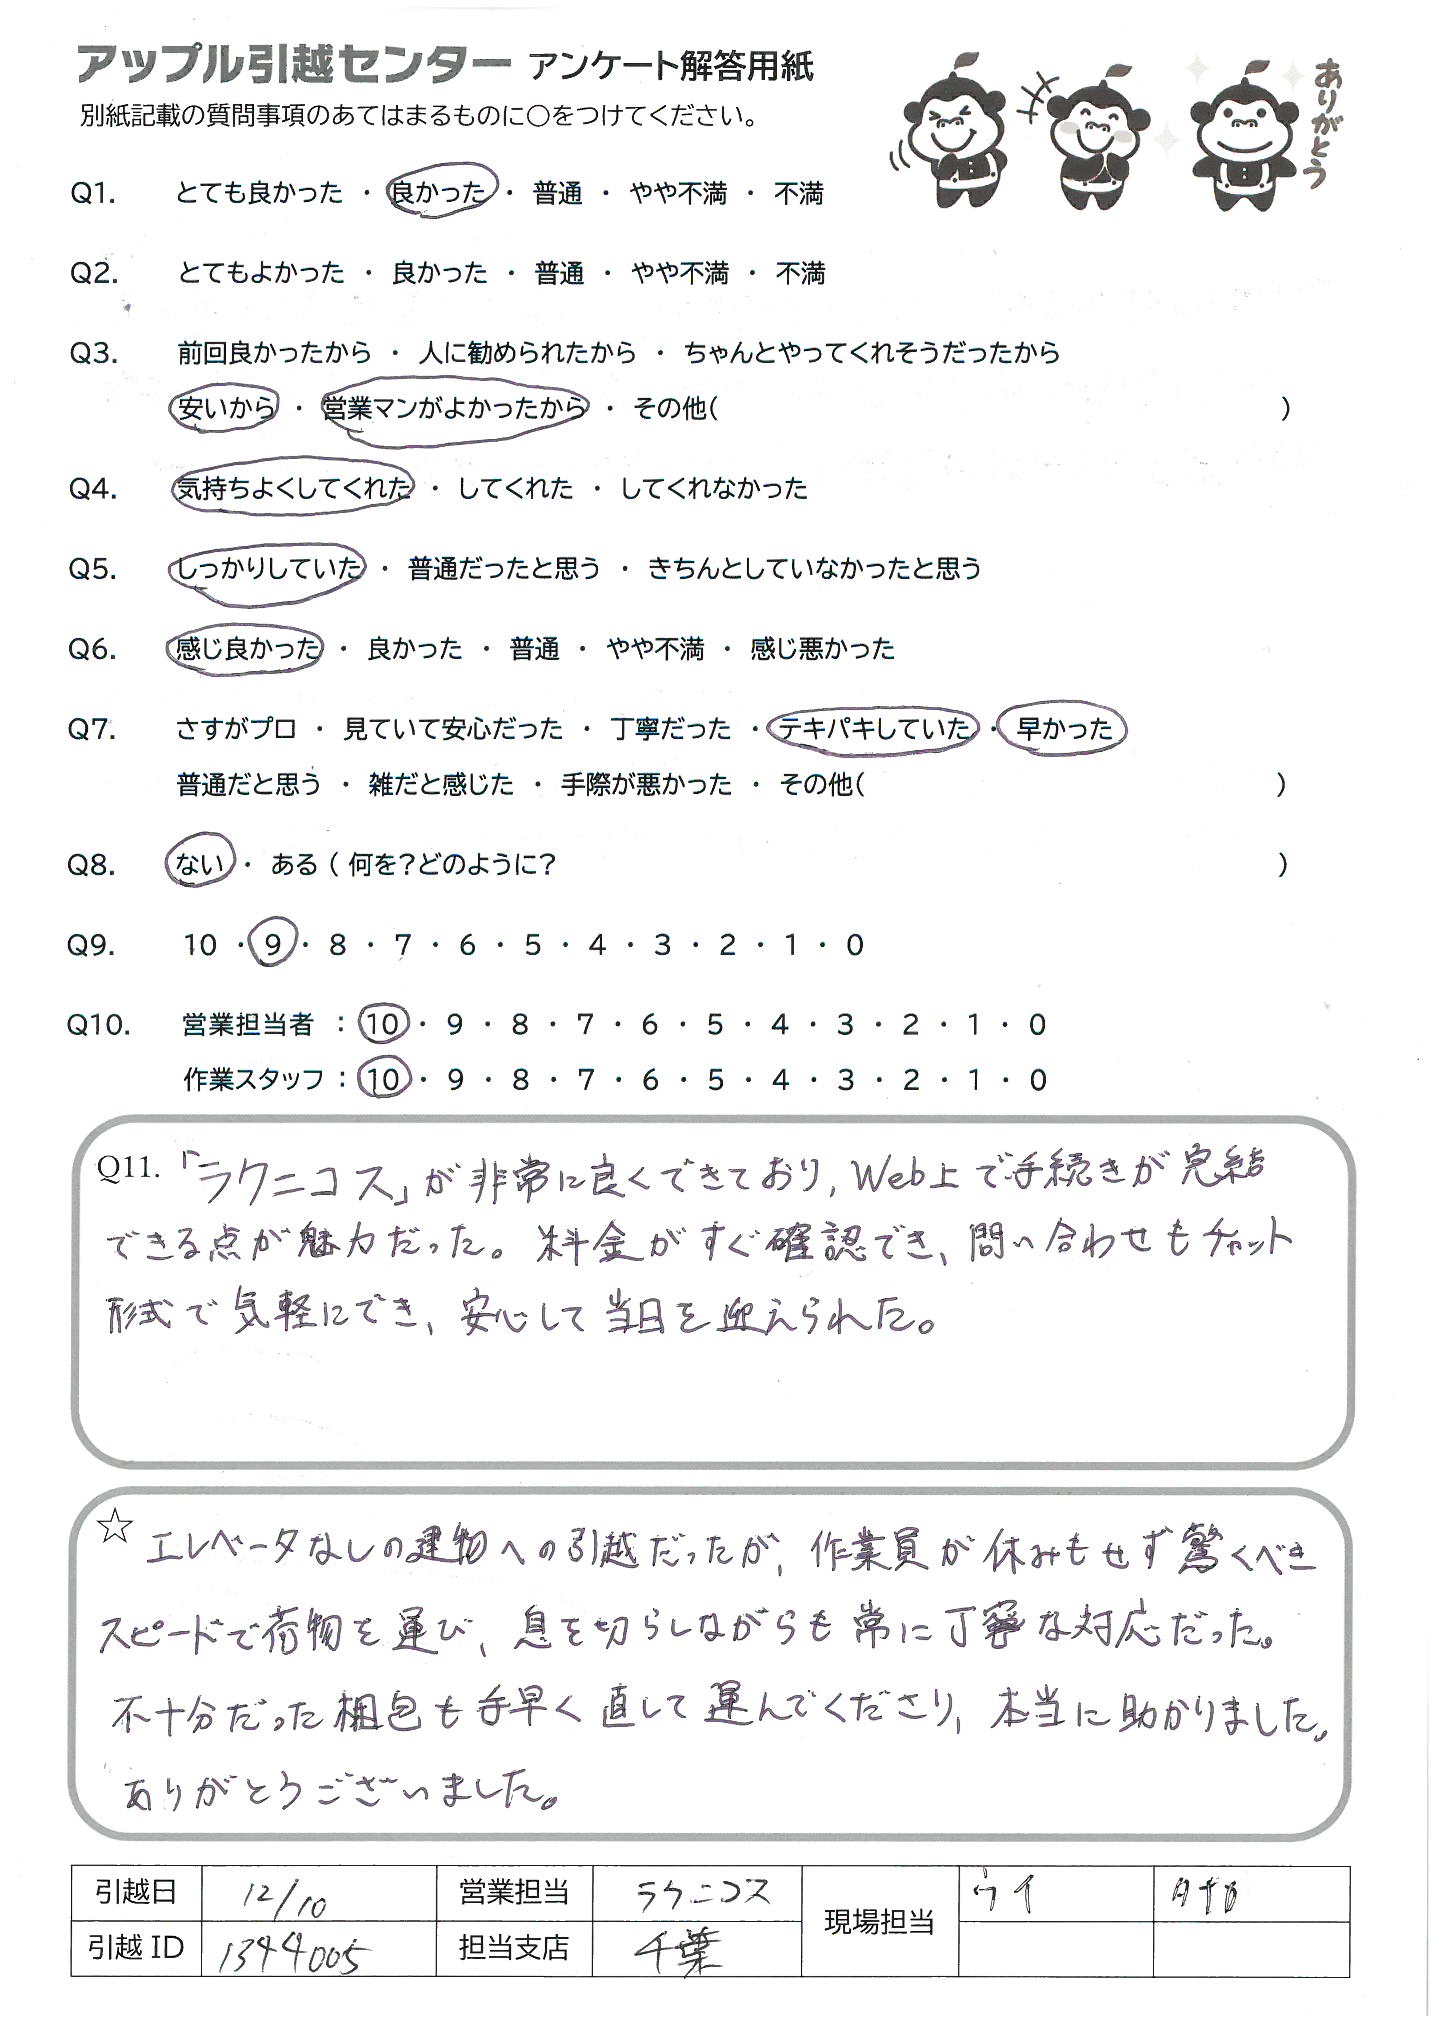 アップル引越センター アンケート解答用紙
別紙記載の質問事項のあてはまるものに〇をつけてください。
ありがとう
Q1. とても良かった ・ 良かった ・ 普通 ・ やや不満 ・ 不満
Q2. とてもよかった ・ 良かった ・ 普通 ・ やや不満 ・ 不満
Q3. 前回良かったから ・ 人に勧められたから ・ ちゃんとやってくれそうだったから
安いから ・ 営業マンがよかったから ・ その他( )
Q4. 気持ちよくしてくれた ・ してくれた ・ してくれなかった
Q5. しっかりしていた ・ 普通だったと思う ・ きちんとしていなかったと思う
Q6. 感じ良かった ・ 良かった ・ 普通 ・ やや不満 ・ 感じ悪かった
Q7. さすがプロ ・ 見ていて安心だった ・ 丁寧だった ・ テキパキしていた ・ 早かった
普通だと思う ・ 雑だと感じた ・ 手際が悪かった ・ その他( )
Q8. ない ・ ある ( 何を?どのように? )
Q9. 10 ・ 9 ・ 8 ・ 7 ・ 6 ・ 5 ・ 4 ・ 3 ・ 2 ・ 1 ・ 0
Q10. 営業担当者 : 10 ・ 9 ・ 8 ・ 7 ・ 6 ・ 5 ・ 4 ・ 3 ・ 2 ・ 1 ・ 0
作業スタッフ : 10 ・ 9 ・ 8 ・ 7 ・ 6 ・ 5 ・ 4 ・ 3 ・ 2 ・ 1 ・ 0
Q11. 「ラクニコス」が非常に良くできており、Web上で手続きが完結
できる点が魅力だった。料金がすぐ確認でき、問い合わせもチャット
形式で気軽にでき、安心して当日を迎えられた。
☆ エレベータなしの建物への引越だったが、作業員が休みもせず驚くべき
スピードで荷物を運び、息を切らしながらも常に丁寧な対応だった。
不十分だった梱包も手早く直して運んでくださり、本当に助かりました。
ありがとうございました。
引越日 12/10 営業担当 ラクニコス 現場担当 ウイ
引越 ID 1344005 担当支店 千葉